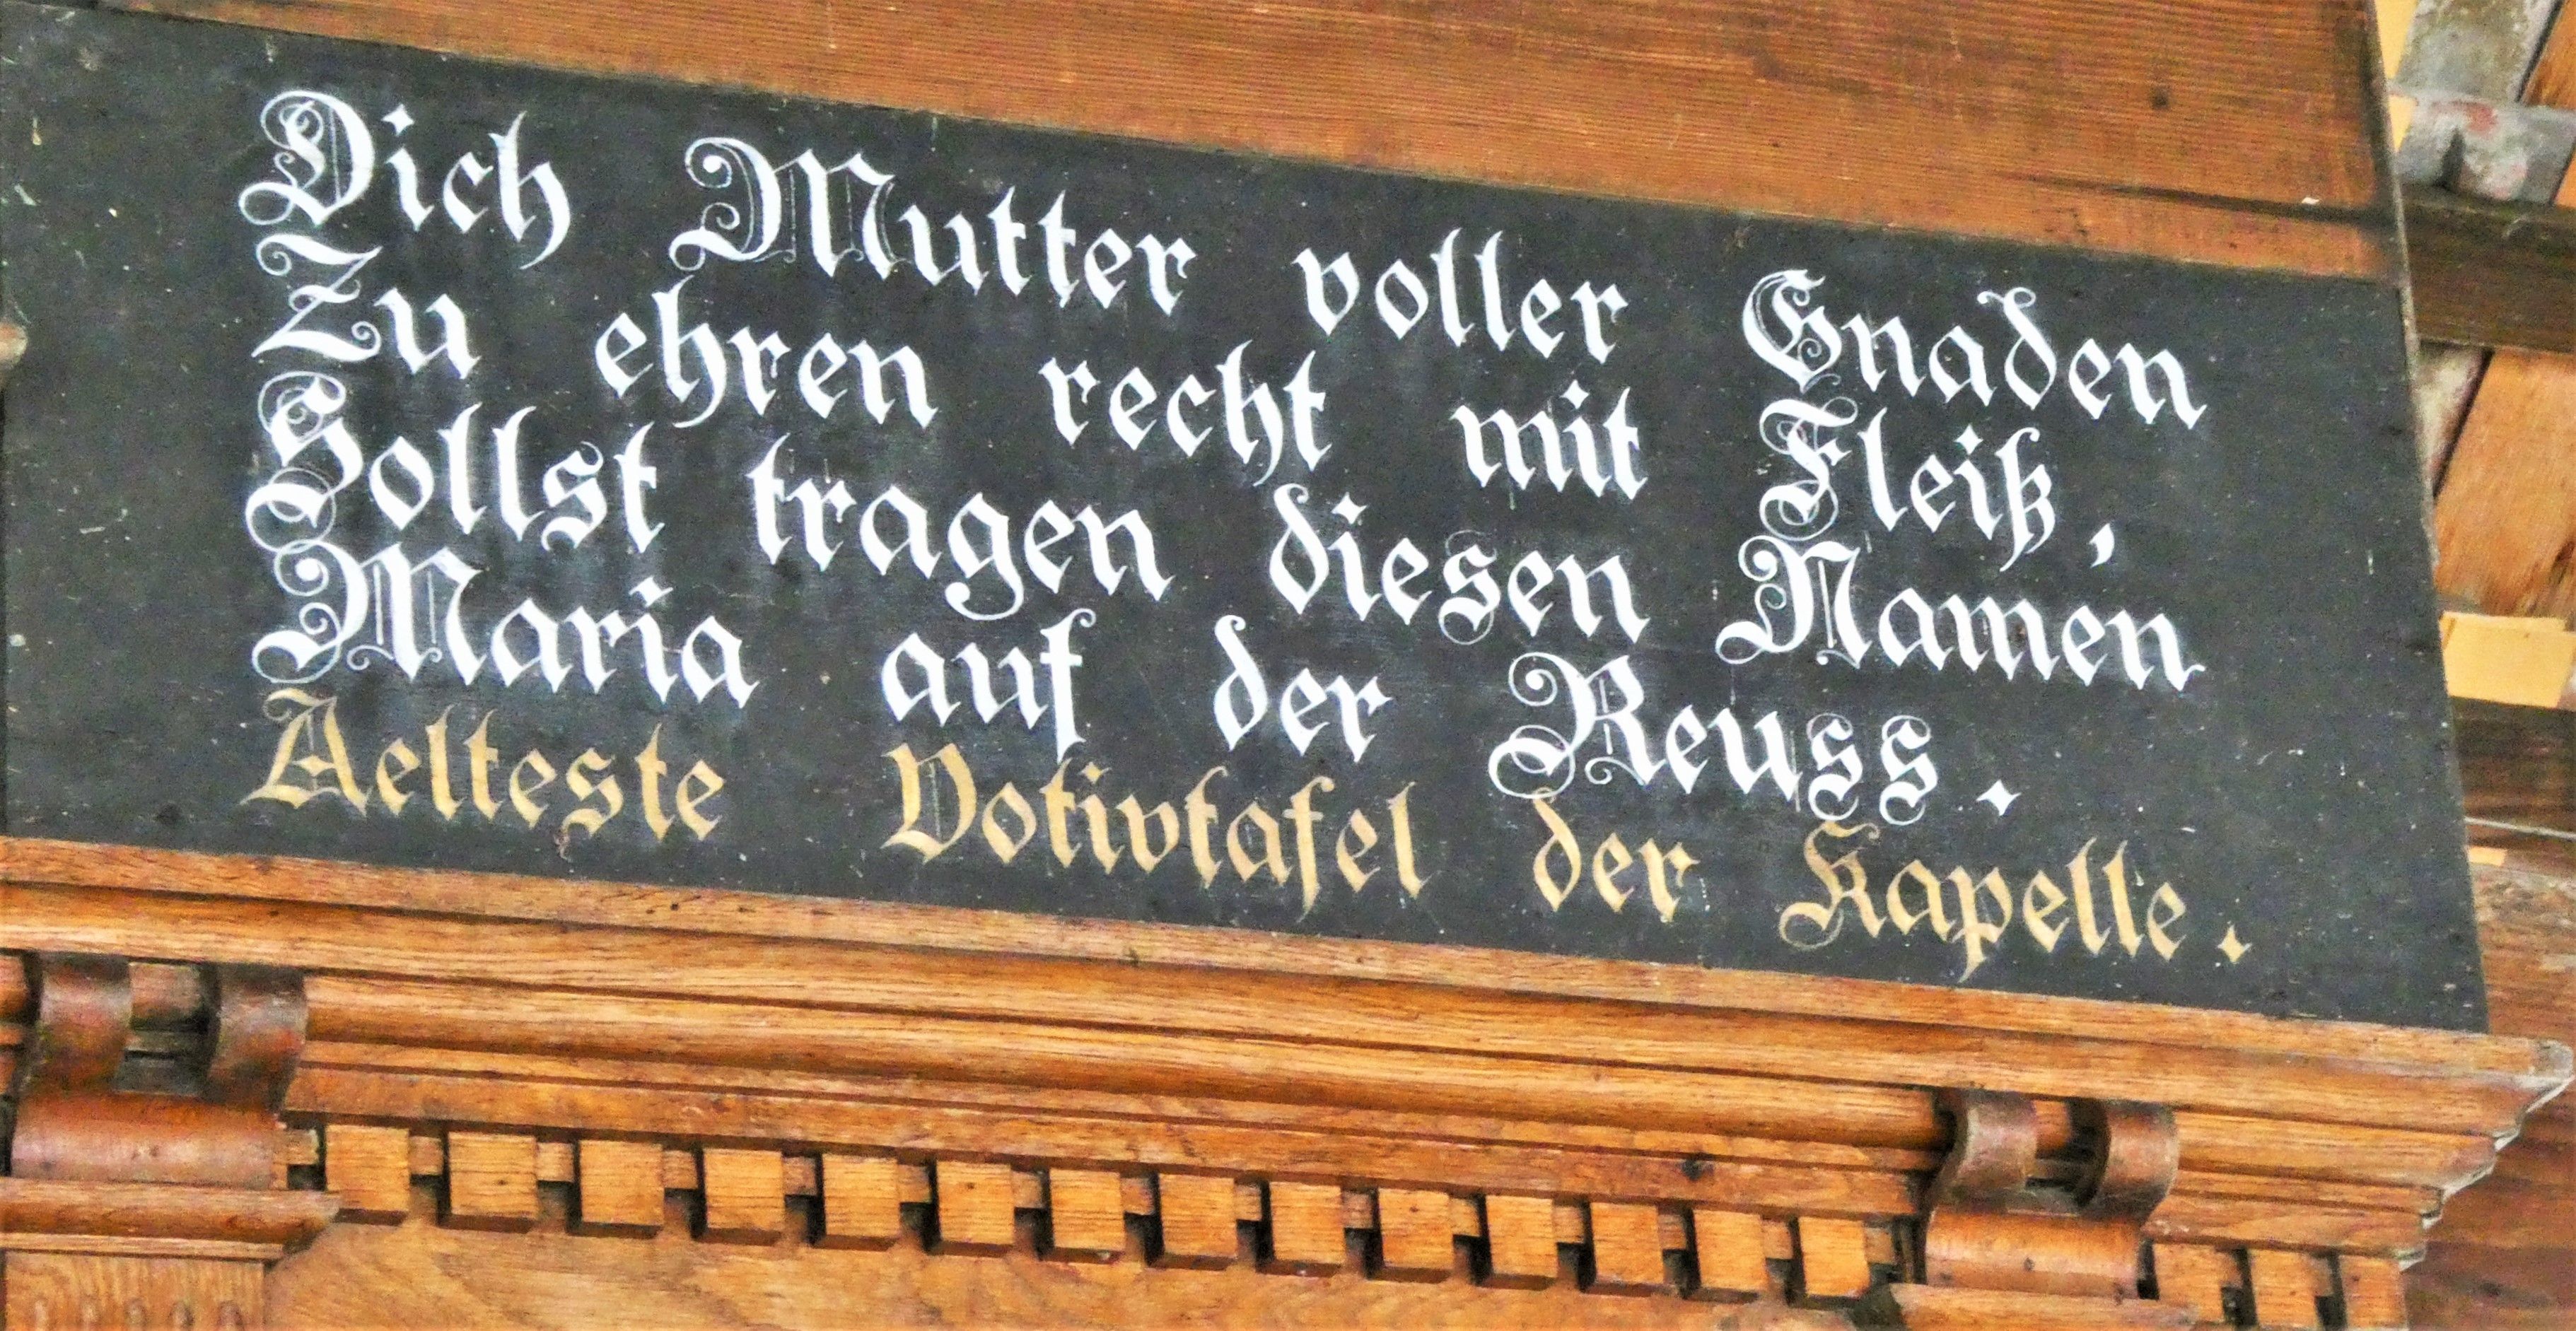 Dich Mutter voller Gnaden
Zu ehren recht mit Fleiß,
Sollst tragen diesen Namen
Maria auf der Reuss.
Aelteste Votivtafel der Kapelle.